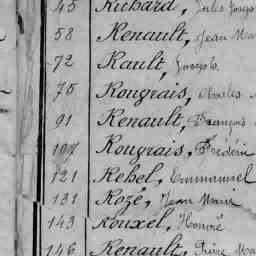 45 Richard, Jules Joseph
58 Renault, Jean Ma
72 Rault, Joseph
75 Rougrais, Charles
91 Renault, François
107 Rougrais, Frédéric
121 Rehel, Emmanuel
131 Rozé, Jean Marie
143 Rouxel, Honoré
146 Renault, Pierre Ma